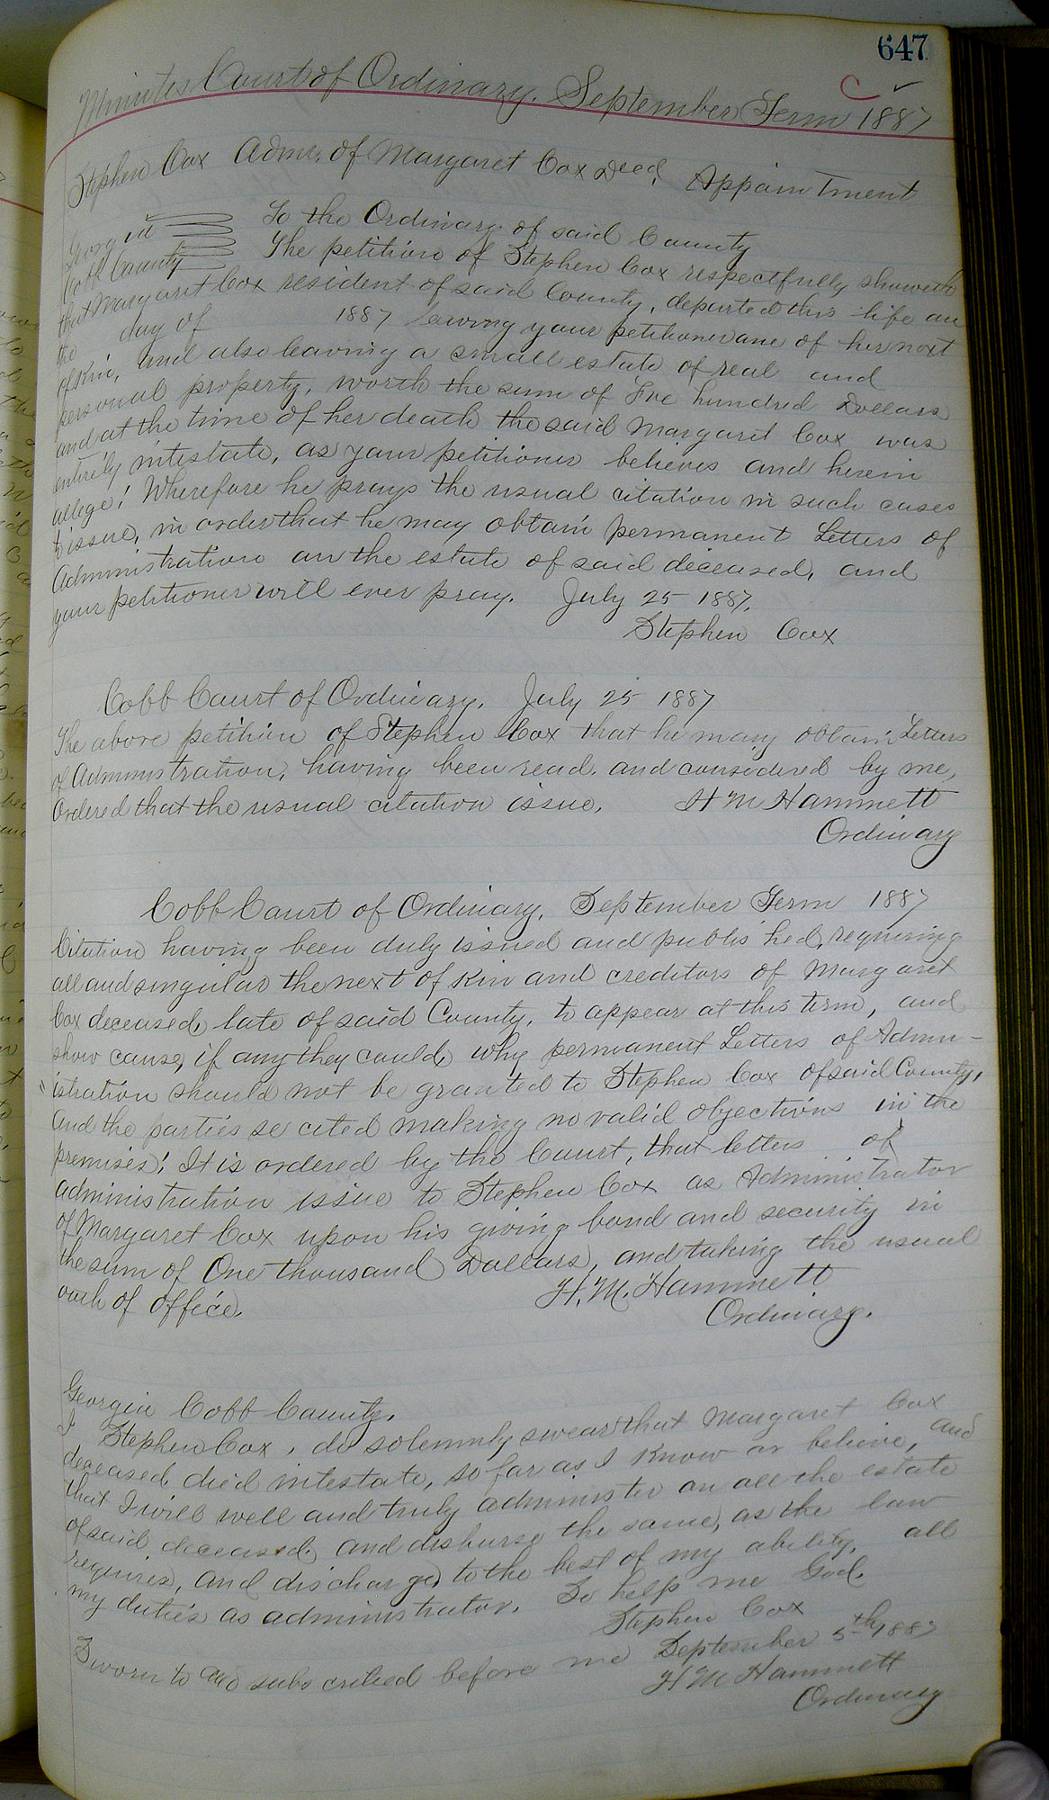 647
C ✓
Minutes Court of Ordinary. September Term 1887
Stephen Cox Admr. of Margaret Cox Decd. Appointment
Georgia To the Ordinary of said County
Cobb County The petition of Stephen Cox respectfully sheweth
that Margaret Cox resident of said County, departed this life on
the day of 1887 leaving your petitioner one of her next
of Kin, and also leaving a small estate of real and
personal property, worth the sum of Five hundred Dollars
and at the time of her death the said Margaret Cox was
entirely intestate, as your petitioner believes and herein
allege! Wherefore he prays the usual citation in such cases
to issue, in order that he may obtain permanent Letters of
Administration on the estate of said deceased, and
your petitioner will ever pray. July 25 1887.
Stephen Cox
Cobb Court of Ordinary. July 25 1887
The above petition of Stephen Cox that he may obtain Letters
of Administration, having been read, and considered by me,
Ordered that the usual citation issue. H M Hammett
Ordinary
Cobb Court of Ordinary. September Term 1887
Citation having been duly issued and published, requiring
all and singular the next of Kin and creditors of Margaret
Cox deceased, late of said County, to appear at this term, and
show cause, if any they could, why permanent Letters of Admin-
"istration should not be granted to Stephen Cox of said County,
and the parties so cited making no valid objections in the
premises! It is ordered by the Court, that letters of
administration issue to Stephen Cox as Administrator
of Margaret Cox upon his giving bond and security in
the sum of One thousand Dollars, and taking the usual
oath of office. H. M. Hammett
Ordinary.
Georgia Cobb County.
I Stephen Cox, do solemnly swear that Margaret Cox
deceased died intestate, so far as I Know or believe, and
that I will well and truly administer on all the estate
of said deceased, and disburse the same, as the law
requires, and discharge, to the best of my ability, all
my duties as administrator. So help me God.
Stephen Cox
Sworn to and subscribed before me September 5th 1887
H M Hammett
Ordinary